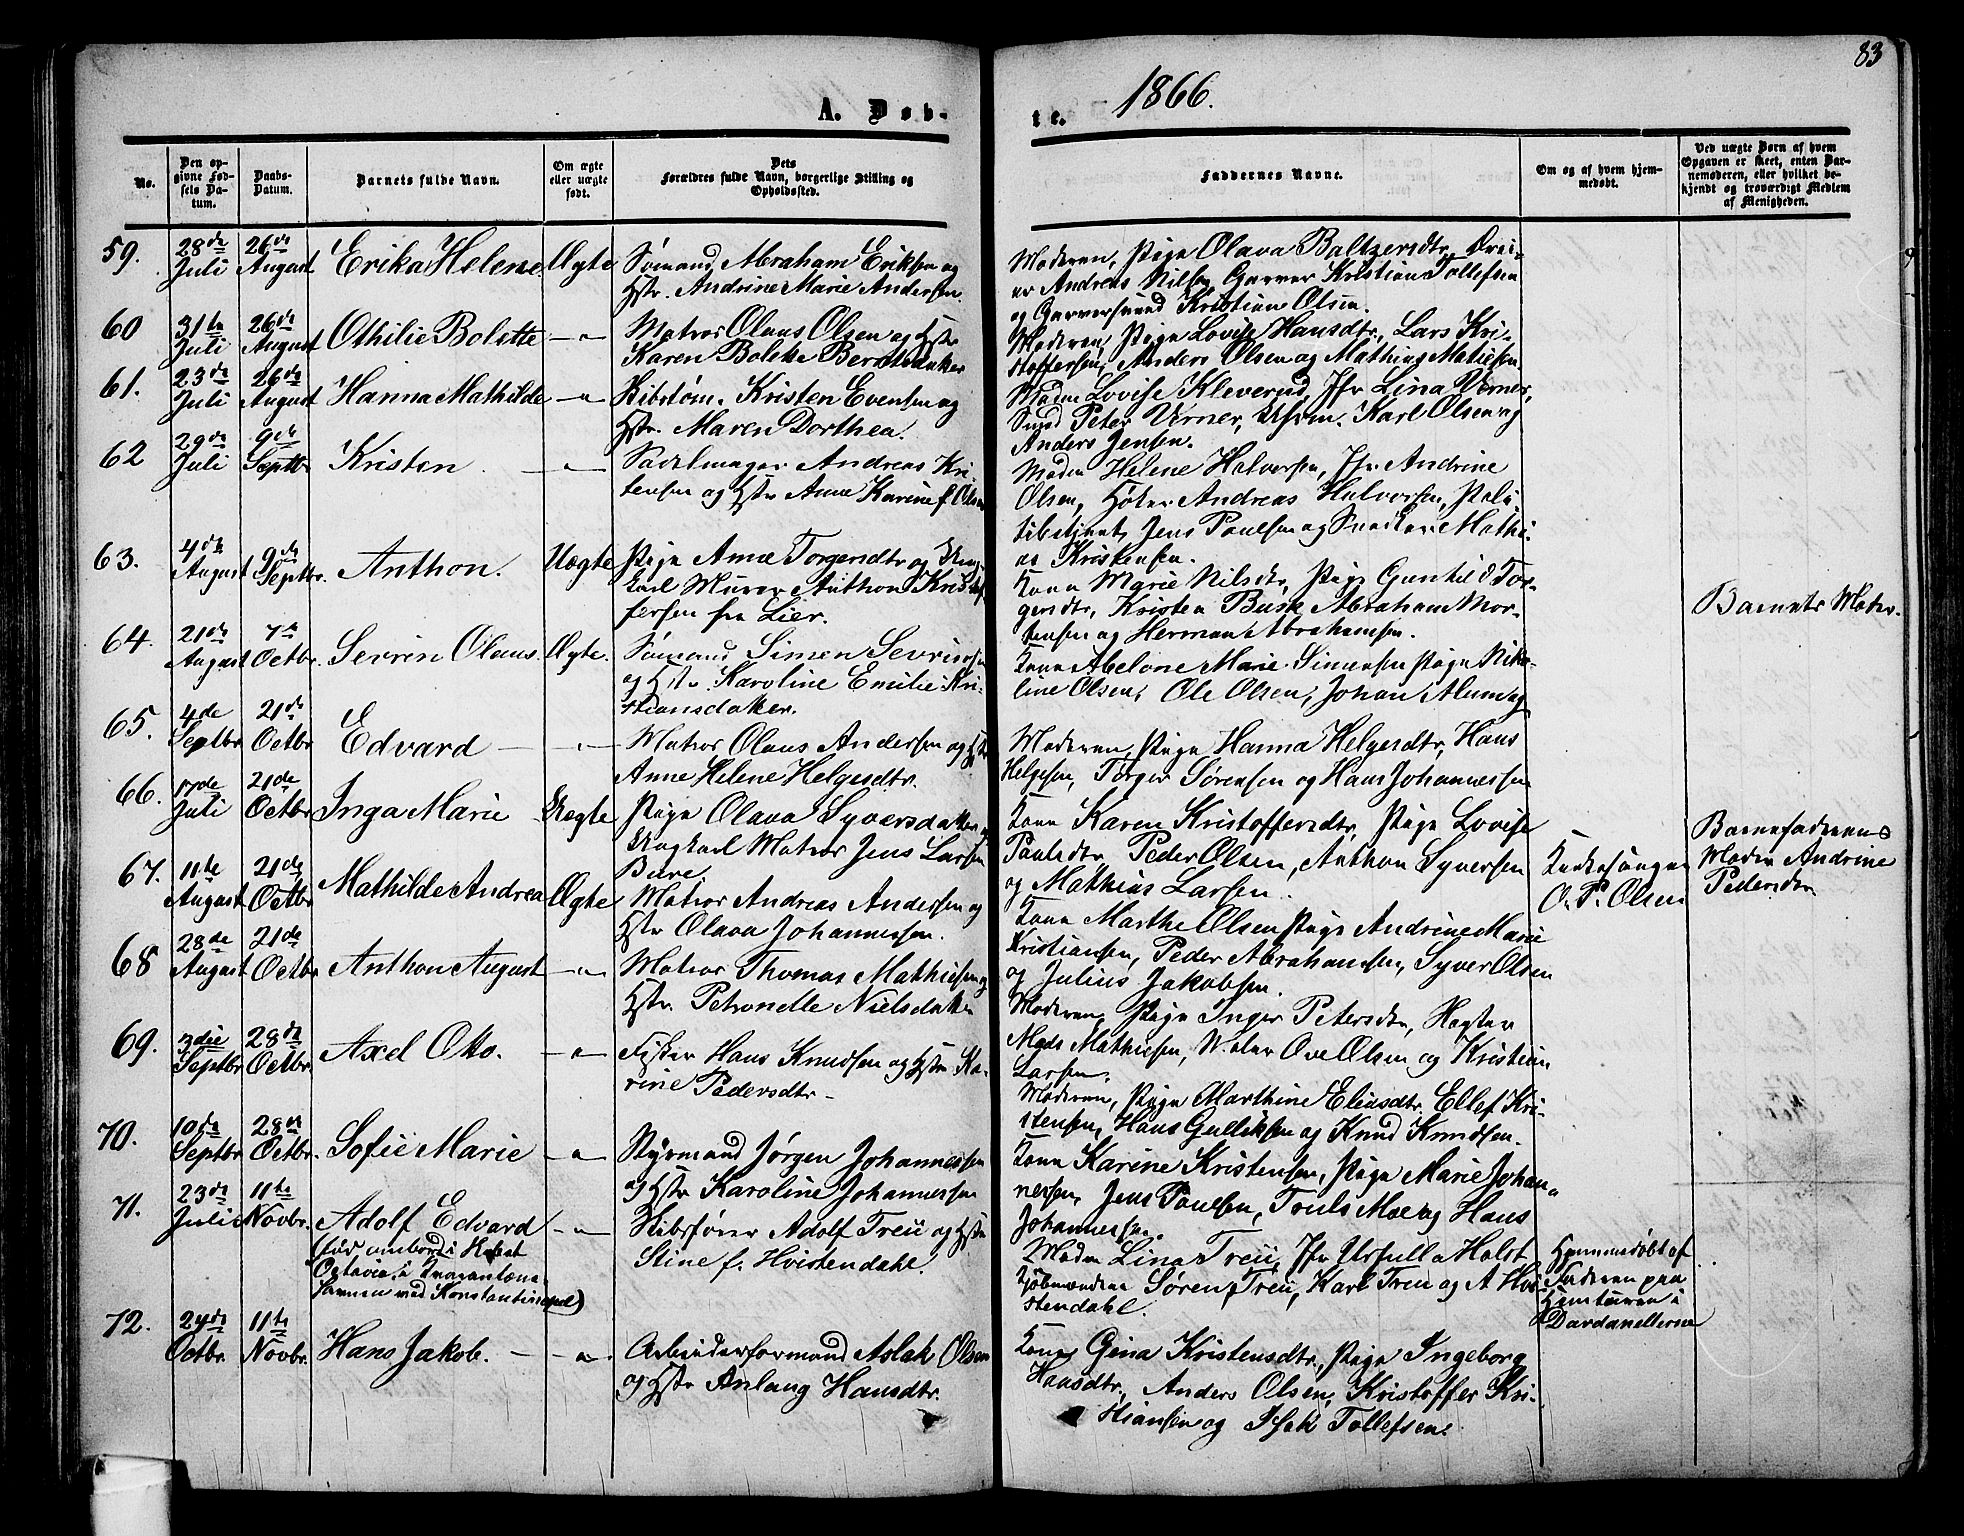 83
1866.
A. Døb-
te.
No.
Den op-
givne Fød-
sels Da-
tum.
Daabs-
Datum.
Barnets fulde Navn.
Om ægte
eller uægte
født.
Dets
Forældres fulde Navn, borgerlige Stilling og
Opholdssted.
Faddernes Navne.
Om og af hvem hjem-
medøbt.
Ved uægte Børn af hvem
Opgaven er skeet, enten Bar-
nemoderen, eller hvilket be-
kjendt og troværdigt Medlem
af Menigheden.
59.
28de
Juli
26de
August
Erika Helene
Ægte
Sømand Abraham Eriksen og
Hstr. Andrine Marie Andersen.
Moderen, Pige Olava Baltzersdtr, Drei-
er Andreas Nilsen, Garver Kristian Tollefsen
og Garversvend Kristian Olsen.
60
31te
Juli
26de
August
Othilie Bolette
—"—
Matros Olaus Olsen og Hstr
Karen Bolette Berntsdatter
Moderen, Pige Lovise Hansdtr, Lars Kri-
stoffersen, Anders Olsen og Mathias Matisen
61.
23de
Juli
26de
August
Hanna Mathilde
—"—
Skibstøm. Kristen Evensen og
Hstr. Maren Dorthea.
Madm Lovise Kleverud, Jfr Lina Verner,
Smed Peter Verner, Ustm. Karl Olsen og
Anders Jensen.
62
29de
Juli
9de
Septbr
Kristen
—"—
Sadelmager Andreas Kri-
stensen og Hstr Anne Karine f. Olsen
Madm Helene Halvorsen, Jfr Andrine
Olsen, Høker Andreas Halvorsen, Poli-
tibetjent Jens Paulsen og Snedker Mathi-
as Kristensen.
63.
4de
August
9de
Septbr.
Anthon.
Uægte
Pige Anne Torgersdtr og Ung-
karl Murer Anthon Kristof-
fersen fra Lier.
Kone Marie Nilsdtr, Pige Gunhild Tor-
gersdtr, Kristen Busk, Abraham Mor-
tensen og Herman Abrahamsen.
Barnets Moder.
64.
21de
August
7de
Octbr.
Sevrin Olaus.
Ægte.
Sømand Simen Sevrinsen
og Hstr. Karoline Emilie Kri-
stiansdatter.
Kone Abelone Marie Simensen Pige Niko-
line Olsen, Ole Olsen, Johan Alum og
65.
4de
Septbr
21de
Octbr
Edvard
—"—
Matros Olaus Andersen og Hstr
Anne Helene Helgesdtr.
Moderen, Pige Hanna Helgesdtr, Hans
Helgesen, Torger Sørensen og Hans Johannessen
66.
17de
Juli
21de
Octbr
Inga Marie
Uægte
Pige Olava Syversdatter og
Ungkarl Matros Jens Larsen
Bure.
Kone Karen Kristoffersdtr, Pige Lovise
Paulsdtr, Peder Olsen, Anthon Syversen
og Mathias Larsen.
Barnefaderens
Moder Andrine
Pedersdtr
67.
11te
August
21de
Octbr
Mathilde Andrea
Ægte
Matros Andreas Andersen og
Hstr Olava Johannessen.
Kone Marthe Olsen Pige Andrine Marie
Kristiansen, Peder Abrahamsen, Syver Olsen
og Julius Jakobsen.
Kirkesanger
O. P. Olsen
68
28de
August
21de
Octbr
Anthon August
—"—
Matros Thomas Mathisen og
Hstr. Petronelle Nielsdatter
Moderen, Pige Inger Petersdtr, Hagtar
Mads Mathiesen, Maler Ove Olsen og Kristian
Larsen.
69.
3die
Septbr
28de
Octbr.
Axel Otto.
—"—
Fisker Hans Knudsen og Hstr Ka-
rine Pedersdtr
Moderen, Pige Marthine Eliasdtr, Ellef Kri-
stensen, Hans Gulliksen og Knud Knudsen.
70.
10de
Septbr
28de
Octbr.
Sofie Marie
—"—
Styrmand Jørgen Johannessen
og Hstr Karoline Johannessen
Kone Karine Kristensen, Pige Marie Johan-
nessen, Jens Paulsen, Truls Moe og Hans
Johannessen.
71.
23de
Juli
11te
Novbr.
Adolf Edvard
(født ombord i Skibet
Octavia i
Havnen ved Konstantinopel)
—"—
Skibsfører Adolf Treu og Hstr
Stine f. Hvistendahl.
Madm Lina Treu, Jfr Ursulla Holst
Kjøbmændene Søren Treu, Karl Treu og A Hvi-
stendahl.
Hjemmedøbt af
Faderen paa
Hjemturen i
Dardanellerne
72.
24de
Octbr.
11te
Novbr.
Hans Jakob.
—"—
Arbeiderformand Aslak Olsen
og Hstr Anlaug Hansdtr.
Kone Gina Kristensdtr, Pige Ingeborg
Hansdtr, Anders Olsen, Kristoffer Kri-
stiansen og Isak Tollefsen.